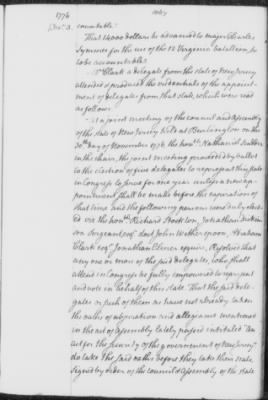 1776
Decr. 3.
accountable.
That 14,000 dollars be advanced to major Charles
Symmes for the use of the 12 Virginia battalion, he
to be accountable.
Mr Clark a delegate from the state of New Jersey
attended & produced the credentials of the appoint-
ment of delegates from that state, which were read
as follows.
At a joint meeting of the council and assembly
of the state of New Jersey held at Burlington on the
30th day of November 1776. the honle. Nathaniel Scudder
in the chair, the joint meeting proceeded by ballot
to the election of five delegates to represent this state
in Congress to serve for one year unless a new ap-
pointment shall be made before the expiration of
that time and the following persons were duly elect-
ed viz the honle. Richard Stockton, Jonathan Dickin
son Sergeant esqr. doct John Witherspoon, Abraham
Clark esqr. Jonathan Elmer esquire, Resolved that
any one or more of the said delegates, who shall
attend in Congress be fully empowered to represent
and vote in behalf of this state. That the said dele-
gates or such of them as have not already taken
the oaths of abjuration and allegiance mentioned
in the act of assembly lately passed intituled "An
act for the security of the government of New Jersey"
do take the said oaths before they take their seats
Signed by order of the council & assembly of the state